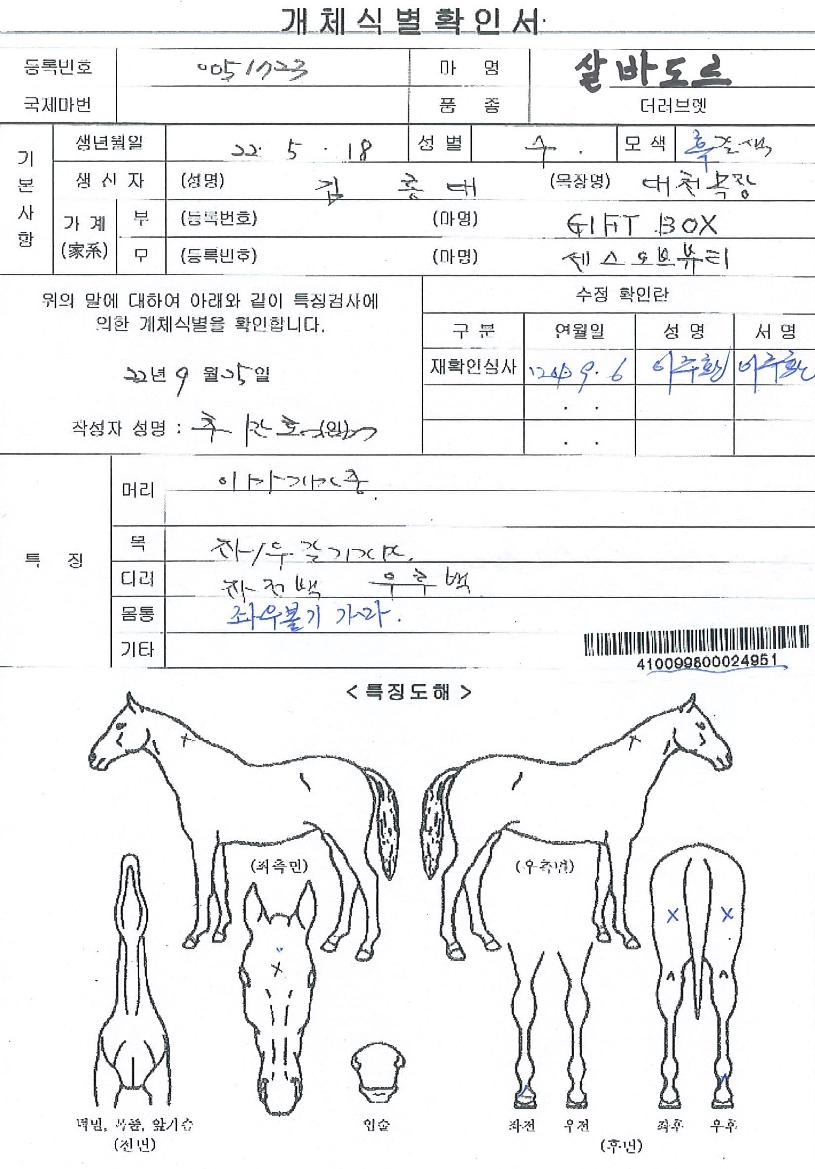 개체식별확인서
등록번호 0051723 마 명 살바도르
국제마번 품 종 더러브렛
기본사항
생년월일 22. 5 . 18 성 별 수 . 모 색 흑갈색
생 산 자 (성명) 김 홍 대 (목장명) 대천목장
가 계 (家系) 부 (등록번호) (마명) GIFT BOX
모 (등록번호) (마명) 센스오브뷰티
위의 말에 대하여 아래와 같이 특징검사에
의한 개체식별을 확인합니다.
22년 9 월 05일
작성자 성명 : (인)
수정 확인란
구 분 연월일 성 명 서 명
재확인심사 9. 6
. .
. .
특 징
머리
목 좌/우
다리 좌전백 우후백
몸통 좌우볼기 가마.
기타
410099800024951
< 특징도해 >
(좌측면) (우측면)
턱밑, 목줄, 앞가슴
(전면)
입술
좌전 우전 좌후 우후
(후면)